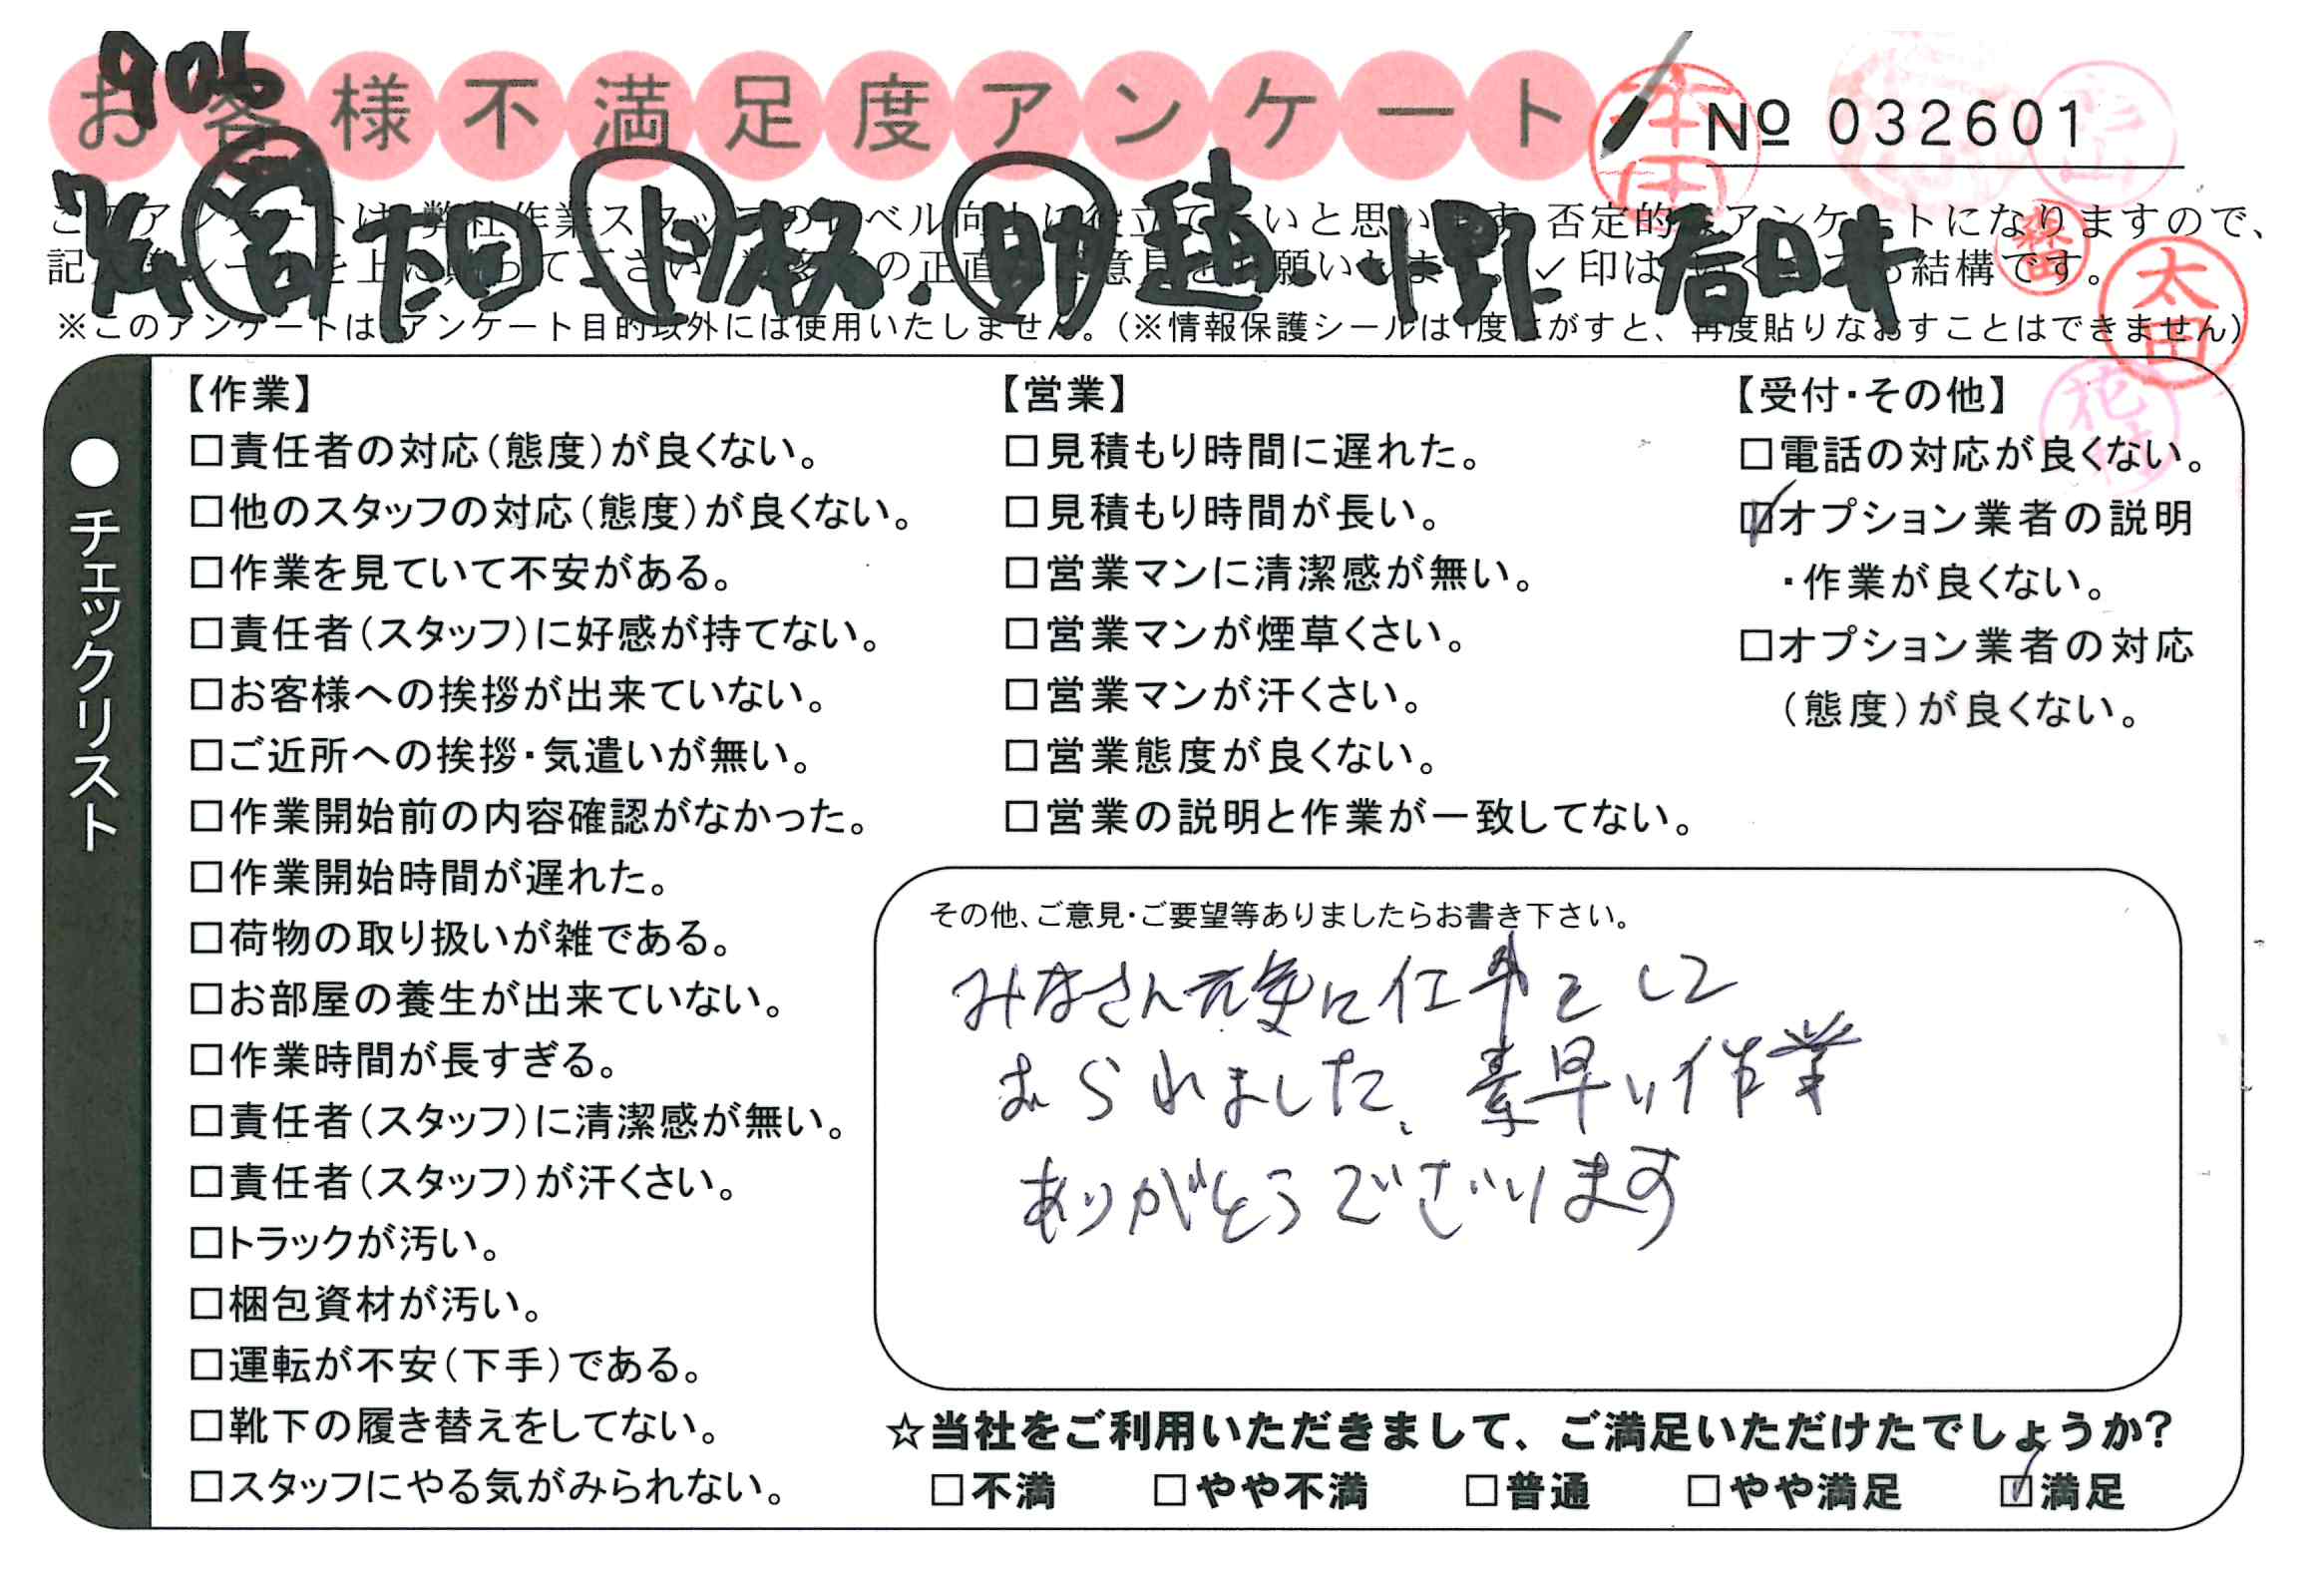 906
お客様不満足度アンケート
本田
No 032601
杉山
このアンケートは、弊社作業スタッフのレベル向上に役立てたいと思います。否定的なアンケートになりますので、
太田 小野 春日井
森田
※このアンケートは、アンケート目的以外には使用いたしません。(※情報保護シールは1度はがすと、再度貼りなおすことはできません)
太田
花村
●チェックリスト
【作業】
□責任者の対応(態度)が良くない。
□他のスタッフの対応(態度)が良くない。
□作業を見ていて不安がある。
□責任者(スタッフ)に好感が持てない。
□お客様への挨拶が出来ていない。
□ご近所への挨拶・気遣いが無い。
□作業開始前の内容確認がなかった。
□作業開始時間が遅れた。
□荷物の取り扱いが雑である。
□お部屋の養生が出来ていない。
□作業時間が長すぎる。
□責任者(スタッフ)に清潔感が無い。
□責任者(スタッフ)が汗くさい。
□トラックが汚い。
□梱包資材が汚い。
□運転が不安(下手)である。
□靴下の履き替えをしてない。
□スタッフにやる気がみられない。
【営業】
□見積もり時間に遅れた。
□見積もり時間が長い。
□営業マンに清潔感が無い。
□営業マンが煙草くさい。
□営業マンが汗くさい。
□営業態度が良くない。
□営業の説明と作業が一致してない。
【受付・その他】
□電話の対応が良くない。
☑オプション業者の説明
・作業が良くない。
□オプション業者の対応
(態度)が良くない。
その他、ご意見・ご要望等ありましたらお書き下さい。
みなさん元気に仕事をして
おられました、素早い作業
ありがとうございます
☆当社をご利用いただきまして、ご満足いただけたでしょうか?
□不満 □やや不満 □普通 □やや満足 ☑満足